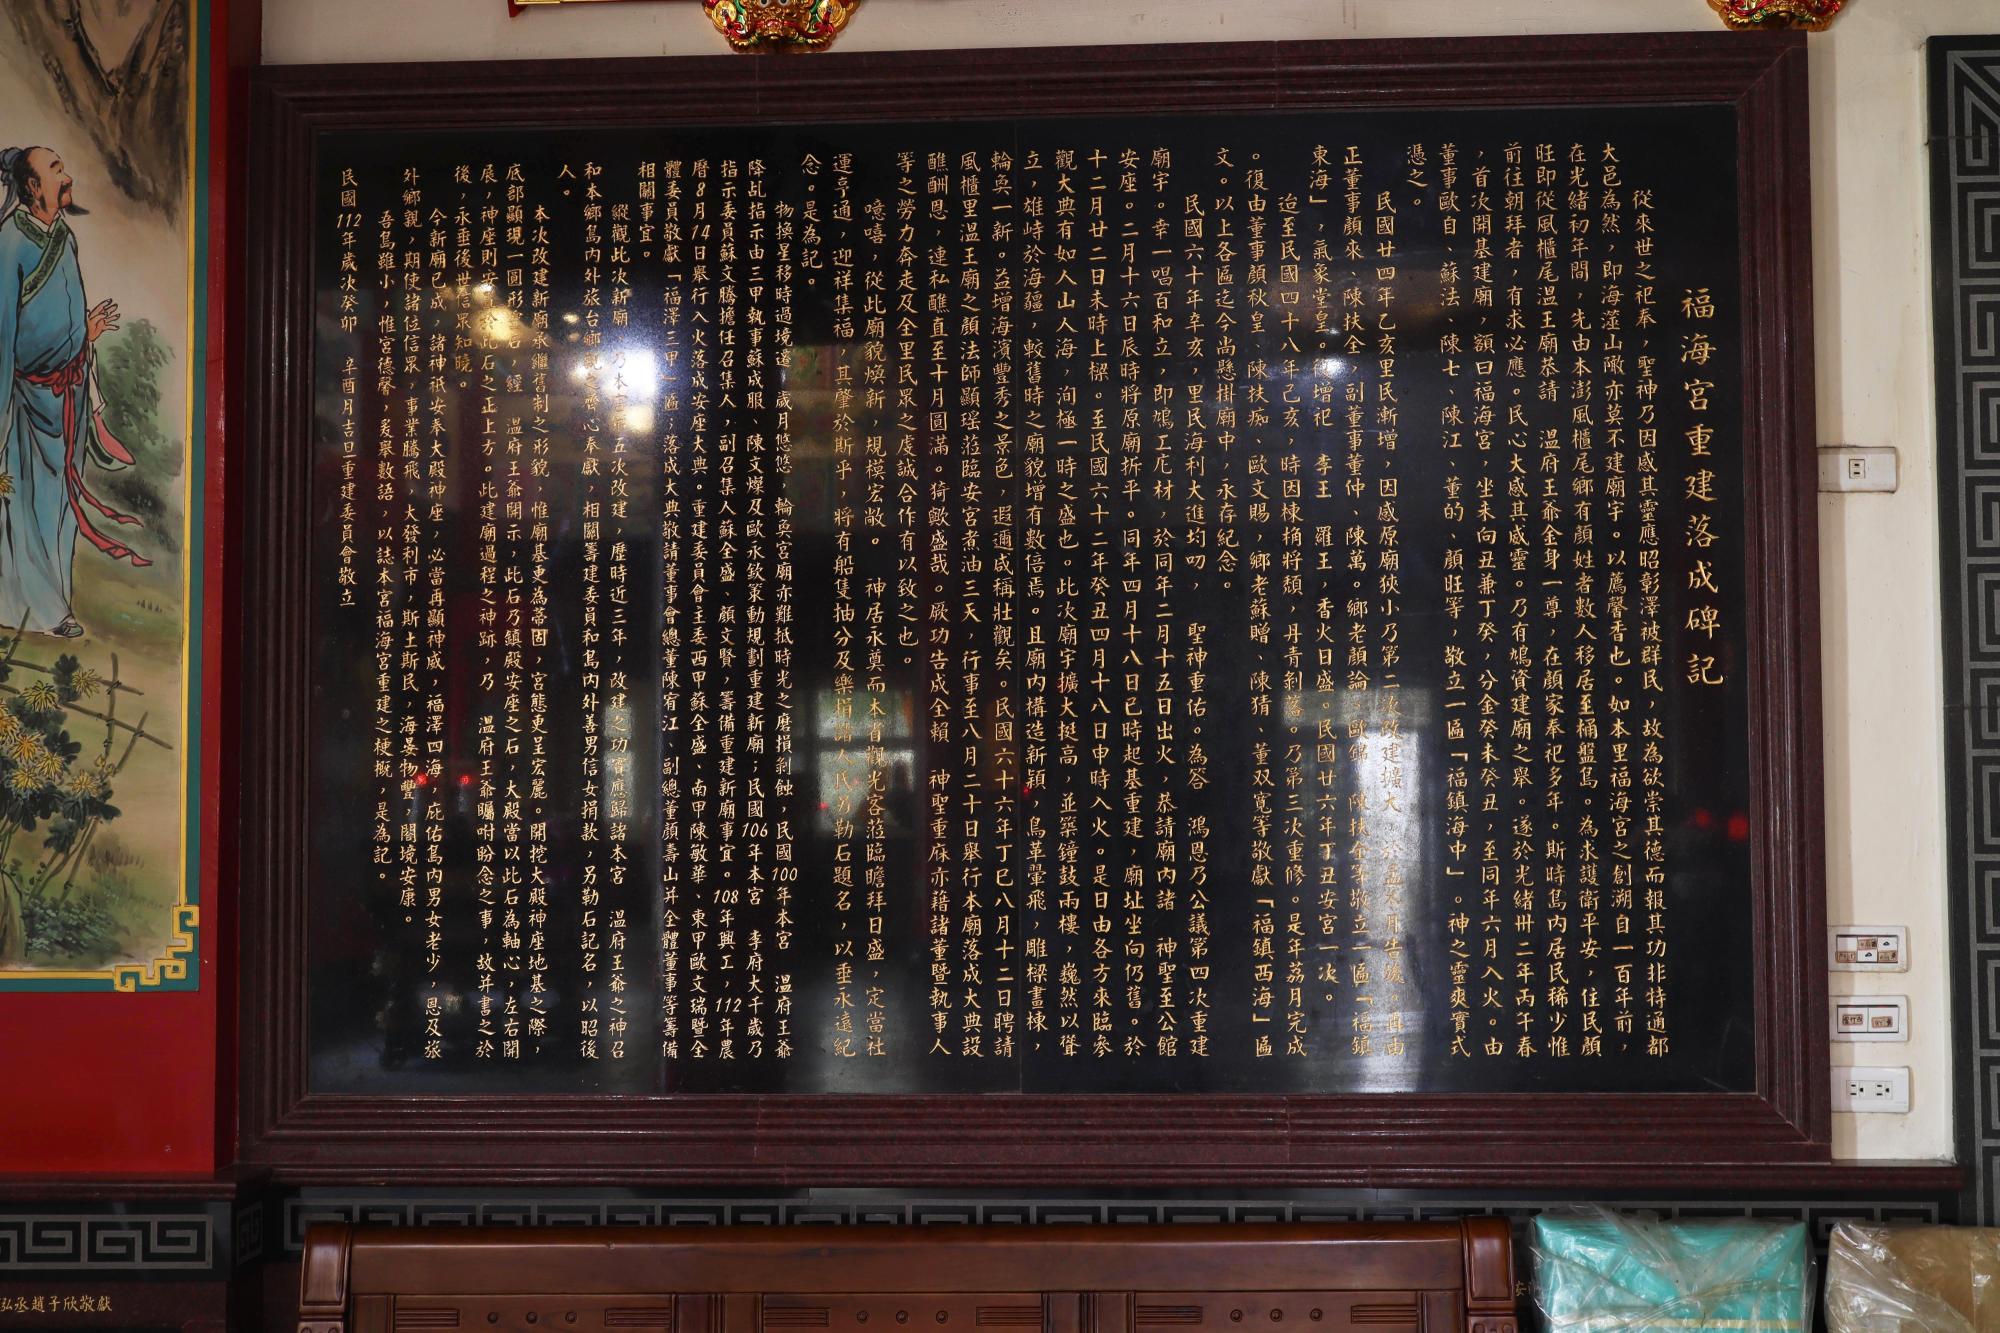 福海宮重建落成碑記
從來世之祀奉，聖神乃因感其靈應昭彰澤被群民，故為欲崇其德而報其功非特通都
大邑為然，即海澨山陬亦莫不建廟宇。以薦馨香也。如本里福海宮之創溯自一百年前，
在光緒初年間，先由本澎風櫃尾鄉有顏姓者數人移居至桶盤島。為求護衛平安，住民顏
旺即從風櫃尾溫王廟恭請　溫府王爺金身一尊，在顏家奉祀多年。斯時島內居民稀少惟
前往朝拜者，有求必應。民心大感其威靈。乃有鳩資建廟之舉。遂於光緒卅二年丙午春
，首次開基建廟，額曰福海宮，坐未向丑兼丁癸，分金癸未癸丑，至同年六月入火。由
董事歐自、蘇法、陳七、陳江、董的、顏旺等，敬立一匾「福鎮海中」。神之靈爽實式
憑之。
民國廿四年乙亥里民漸增，因感原廟狹小乃第二次改建擴大，於　月告竣。再由
正董事顏來、陳扶全，副董事董仲、陳萬。鄉老顏論、歐錦、陳扶全等敬立一匾「福鎮
東海」，氣象堂皇。後增祀　李王　羅王，香火日盛。民國廿六年丁丑安宮一次。
迨至民國四十八年己亥，時因棟桷將頹，丹青剝落。乃第三次重修。是年荔月完成
。復由董事顏秋皇、陳扶痴、歐文賜，鄉老蘇贈、陳猜、董双寬等敬獻「福鎮西海」匾
文。以上各匾迄今尚懸掛廟中，永存紀念。
民國六十年辛亥，里民海利大進均叨，　聖神重佑。為答　鴻恩乃公議第四次重建
廟宇。幸一唱百和立，即鳩工庀材，於同年二月十五日出火，恭請廟內諸　神聖至公館
安座。二月十六日辰時將原廟拆平。同年四月十八日巳時起基重建，廟址坐向仍舊。於
十二月廿二日未時上樑。至民國六十二年癸丑四月十八日申時入火。是日由各方來臨參
觀大典有如人山人海，洵極一時之盛也。此次廟宇擴大挺高，並築鐘鼓兩樓，巍然以聳
立，雄峙於海疆，較舊時之廟貌增有數倍焉。且廟內構造新穎，鳥革翬飛，雕樑畫棟，
輪奐一新。益增海濱豐秀之景色，遐邇咸稱壯觀矣。民國六十六年丁巳八月十二日聘請
風櫃里溫王廟之顏法師顯瑤蒞臨安宮煮油三天，行事至八月二十日舉行本廟落成大典設
醮酬恩，連私醮直至十月圓滿。猗歟盛哉。厥功告成全賴　神聖重庥亦藉諸董暨執事人
等之勞力奔走及全里民眾之虔誠合作有以致之也。
噫嘻，從此廟貌煥新，規模宏敞。　神居永奠而本省觀光客蒞臨瞻拜日盛，定當社
運亨通，迎祥集福，其肇於斯乎，將有船隻抽分及樂捐諸人氏另勒石題名，以垂永遠紀
念。是為記。
物換星移時過境遷，歲月悠悠，輪奐宮廟亦難抵時光之磨損剝蝕，民國100年本宮　溫府王爺
降乩指示由三甲執事蘇成服、陳文燦及歐永欽策動規劃重建新廟；民國106年本宮　李府大千歲乃
指示委員蘇文騰擔任召集人，副召集人蘇全盛、顏文賢，籌備重建新廟事宜。108年興工，112年農
曆8月14日舉行入火落成安座大典。重建委員會主委西甲蘇全盛、南甲陳敏華、東甲歐文瑞暨全
體委員敬獻「福澤三甲」匾；落成大典敬請董事會總董陳宥江、副總董顏壽山并全體董事等籌備
相關事宜。
縱觀此次新廟，乃本宮第五次改建，歷時近三年，改建之功實應歸諸本宮　溫府王爺之神召
和本鄉島內外旅台鄉親之齊心奉獻，相關籌建委員和島內外善男信女捐款，另勒石記名，以昭後
人。
本次改建新廟承繼舊制之形貌，惟廟基更為蒂固，宮態更呈宏麗。開挖大殿神座地基之際，
底部顯現一圓形　石，經　溫府王爺開示，此石乃鎮殿安座之石，大殿當以此石為軸心，左右開
展，神座則安　於此石之正上方。此建廟過程之神跡，乃　溫府王爺矚咐盼念之事，故并書之於
後，永垂後世信眾知曉。
今新廟已成，諸神祇安奉大殿神座，必當再顯神威，福澤四海，庇佑島內男女老少，恩及旅
外鄉親，期使諸位信眾，事業騰飛，大發利市，斯土斯民，海晏物豐，闔境安康。
吾島雖小，惟宮德馨，爰舉數語，以誌本宮福海宮重建之梗概，是為記。
民國112年歲次癸卯　辛酉月吉旦重建委員會敬立
弘丞趙子欣敬獻